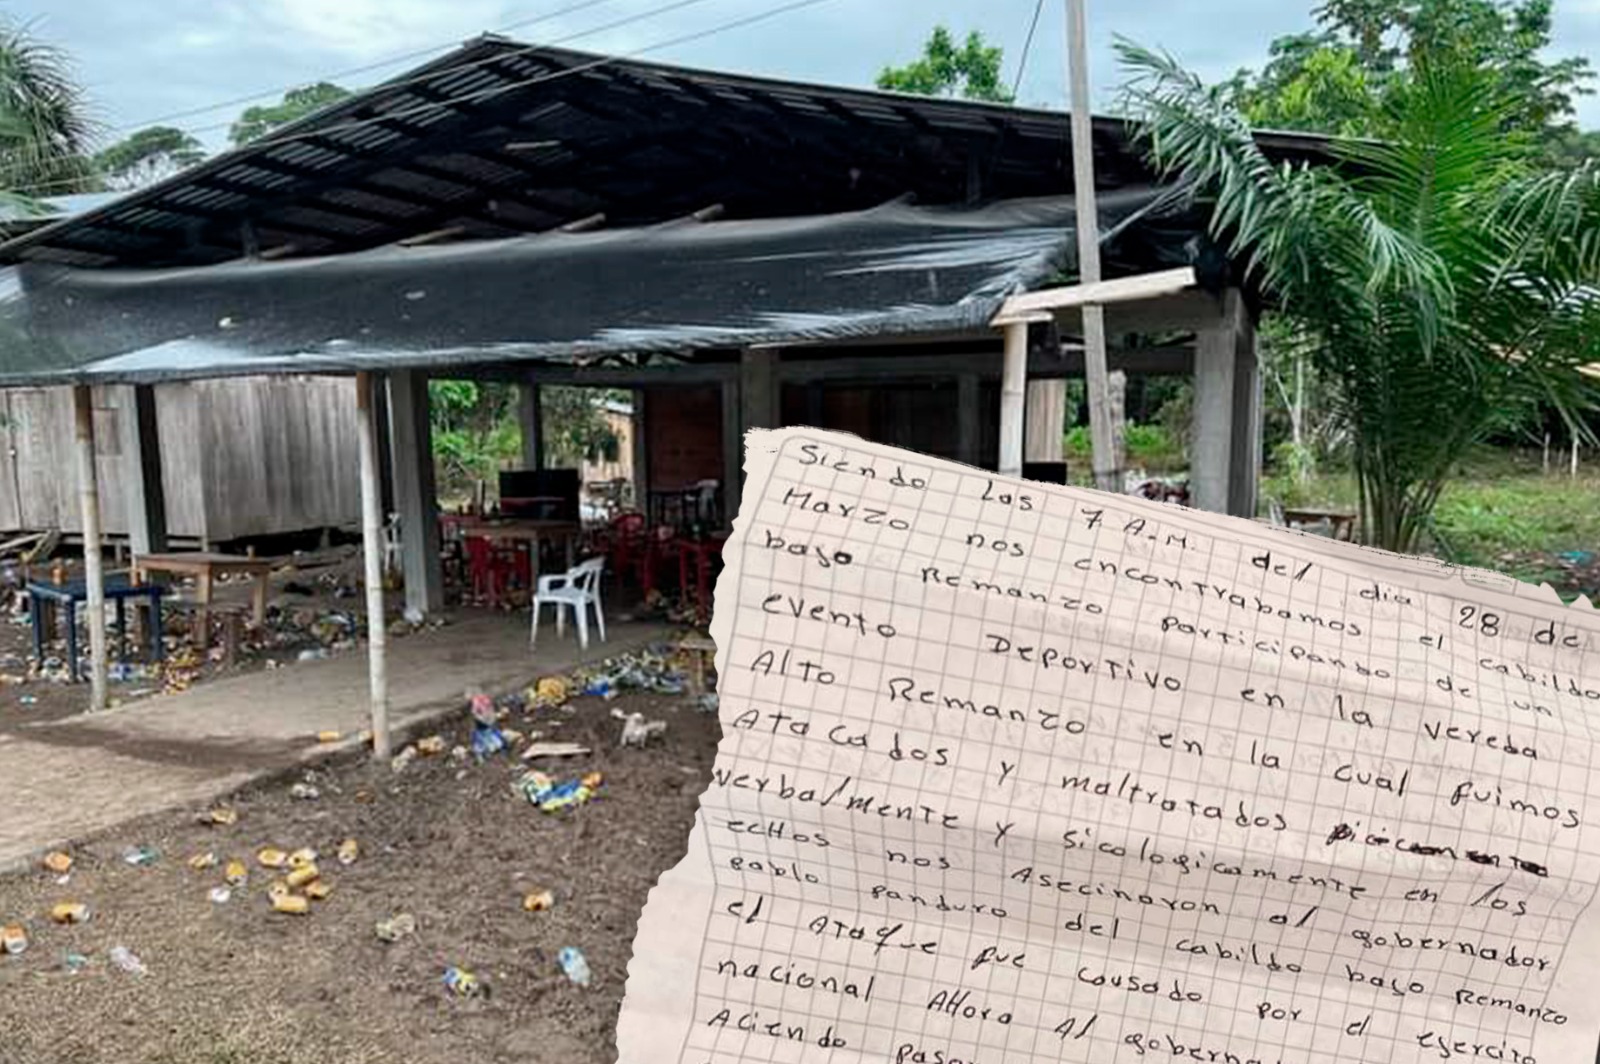 Siendo las 7 A.M. del dia 28 de
Marzo nos encontrabamos el cabildo
bajo Remanzo participando de un
evento Deportivo en la vereda
Alto Remanzo en la cual fuimos
Atacados y maltratados
verbalmente y sicologicamente en los
ecHos nos Asecinaron al gobernador
pablo panduro del cabildo bajo Remanzo
el Ataque fue causado por el ejercito
nacional AHora Al
Aciendo